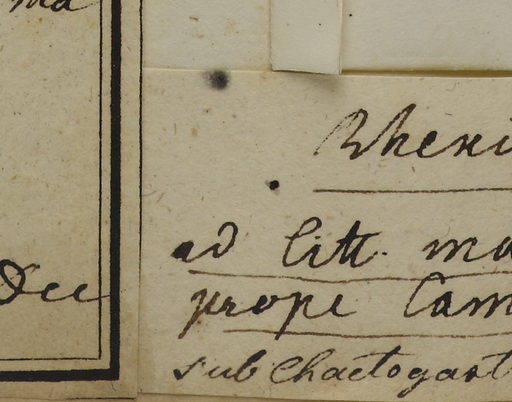 ma
Dec
Rheni
ad litt. ma
prope Cam
sub Chaetogast